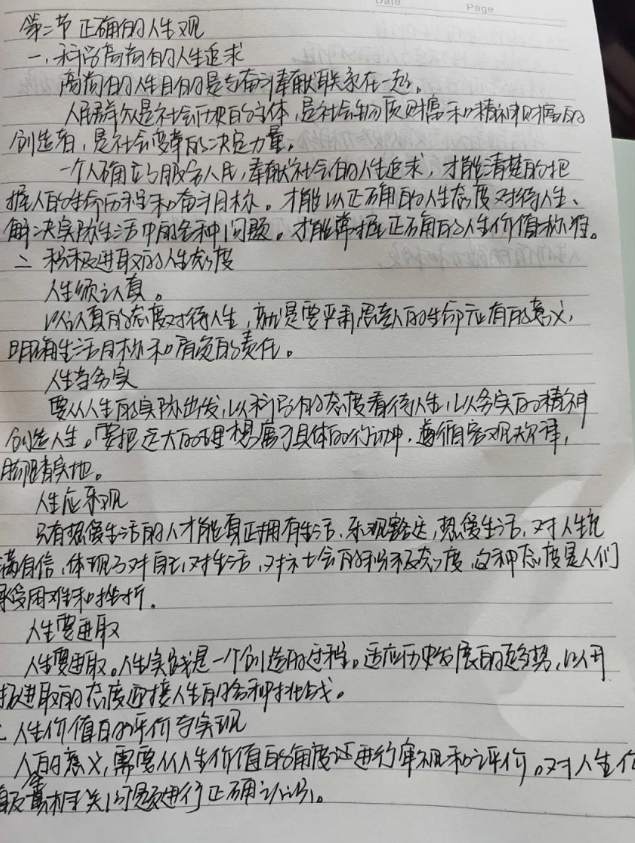 Date
Page
第二节 正确的人生观
一、科学高尚的人生追求
高尚的人生目的是与奋斗奉献联系在一起。
人民群众是社会历史的主体，是社会物质财富和精神财富的
创造者，是社会变革的决定力量。
一个人确立了服务人民，奉献社会的人生追求，才能清楚的把
握人的生命历程和奋斗目标。才能以正确的人生态度对待人生、
解决实际生活中的各种问题。才能掌握正确的人生价值标准。
二 积极进取的人生态度
人生须认真。
以认真的态度对待人生，就是要严肃思考人的生命应有的意义，
明确生活目标和肩负的责任。
人生当务实
要从人生的实际出发，以科学的态度看待人生，以务实的精神
创造人生。要把远大的理想寓于具体的行动中，遵循客观规律，
脚踏实地。
人生应乐观
只有热爱生活的人才能真正拥有生活，乐观豁达，热爱生活，对人生充
满自信，体现了对自己，对生活，对社会的积极态度，这种态度是人们
承受困难和挫折。
人生要进取
人生要进取。人生实践是一个创造的过程。适应历史发展的趋势，以开
拓进取的态度迎接人生的各种挑战。
人生价值的评价与实现
人的意义，需要从人生价值的角度还进行审视和评价。对人生价
相关问题进行正确认识。